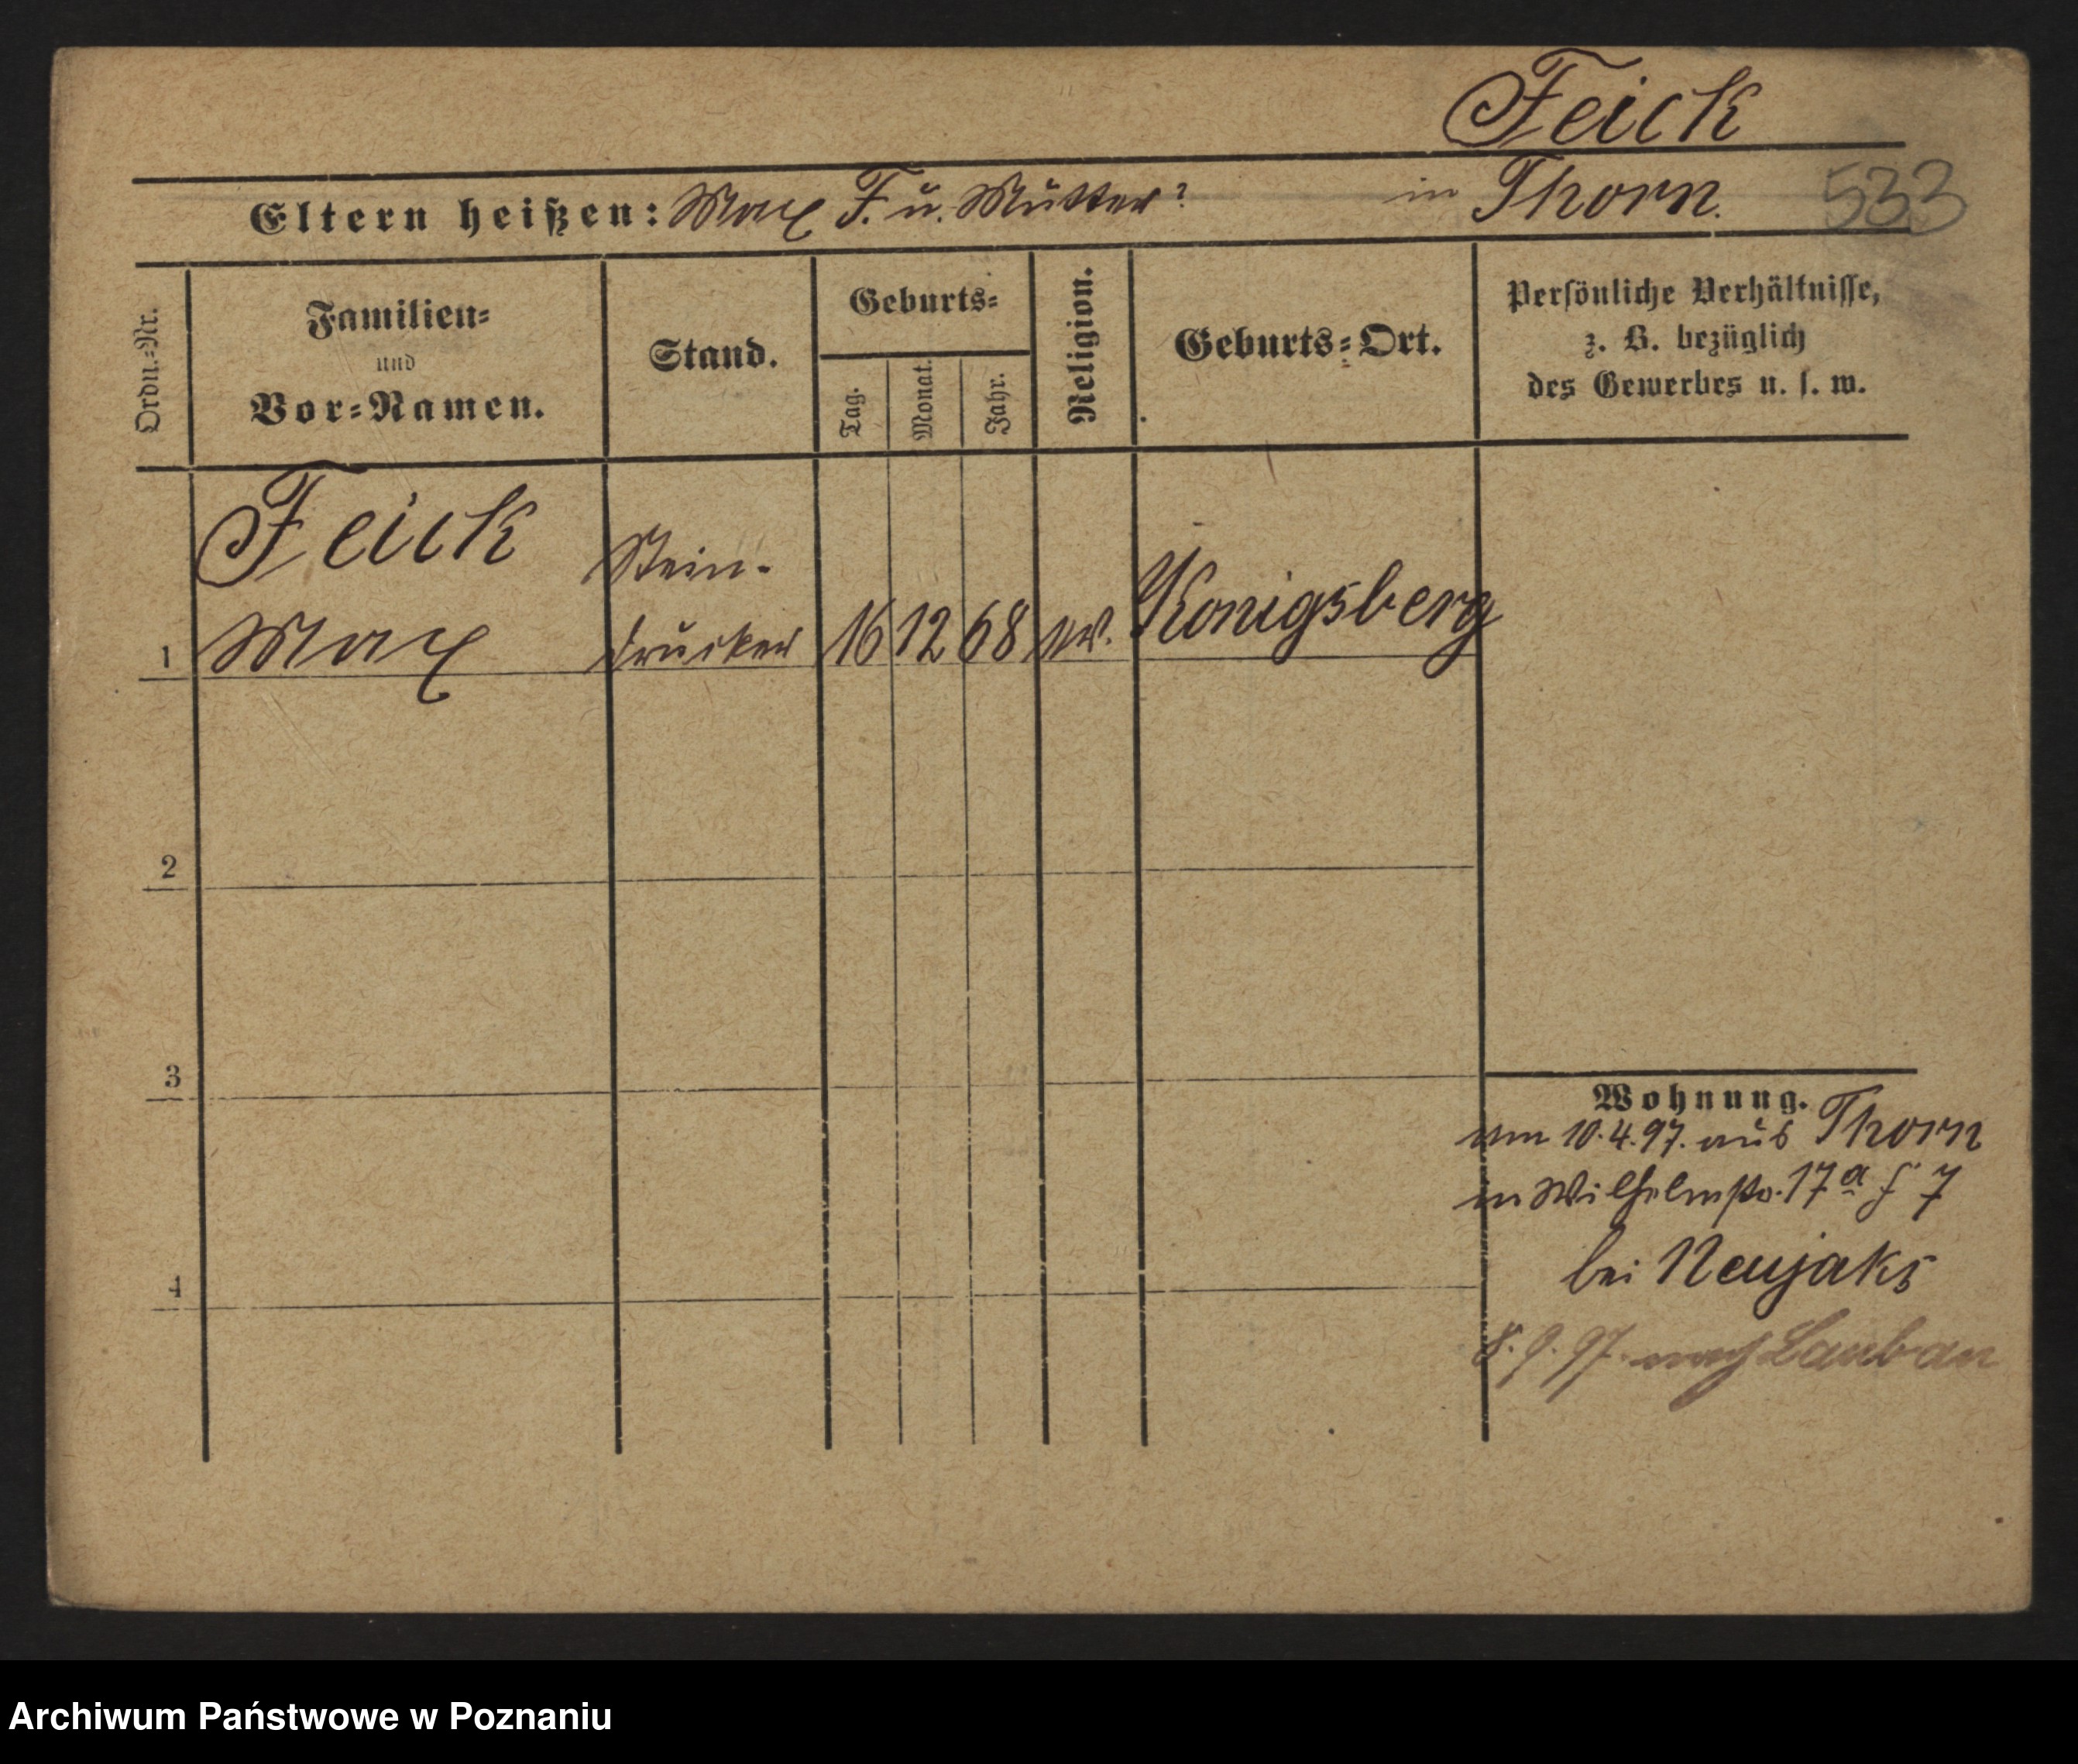 Feick
Eltern heißen: Max F. u. Mutter? in Thorn. 533
Ordn.-Nr.
Familien-
und
Vor-Namen.
Stand.
Geburts-
Tag.
Monat.
Jahr.
Religion.
Geburts-Ort.
Persönliche Verhältnisse,
z. B. bezüglich
des Gewerbes u. s. w.
Feick
Max
Stein-
drucker
1 16 12 68 ev. Konigsberg
2
3
4
Wohnung.
am 10.4.97. aus Thorn
in Wilhelmstr. 17a 7
bei Neujaks
8.9.97. nach Lauban
Archiwum Państwowe w Poznaniu